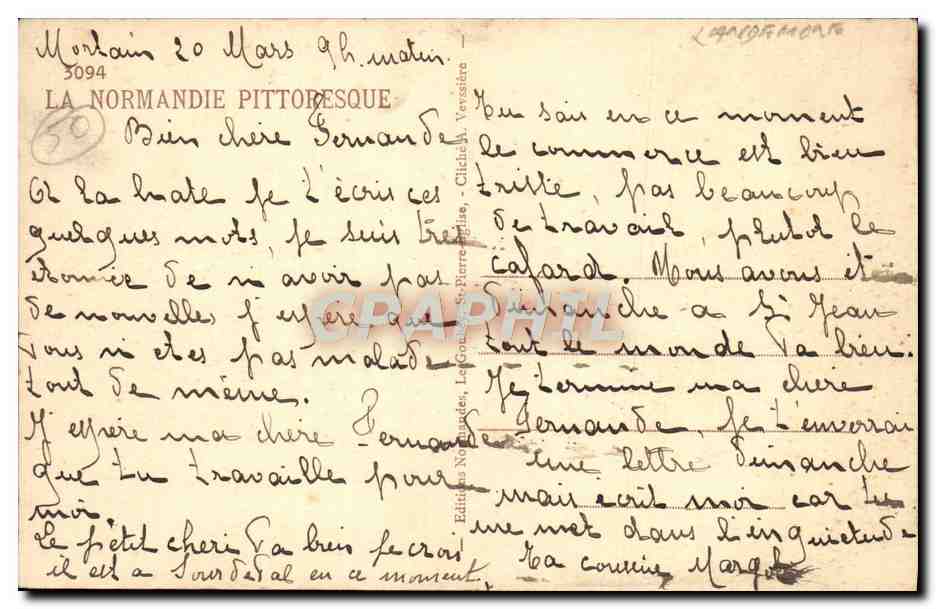 Mortain 20 Mars 9h. matin.
3094
LA NORMANDIE PITTORESQUE
50
Bien chère Fernande
A la hate je t'écris ces
quelques mots, je suis très
étonnée de n'avoir pas
de nouvelles j'espère que
vous n'etes pas malade
tout de même.
J'espère ma chère Fernande
que tu travaille pour
moi.
Le petit cheri va bien je crois
il est a Sourdeval en ce moment.
Editions Normandes, Le St-Pierre-Eglise. - Cliché A. Veyssière
Tu sais en ce moment
le commerce est bien
triste, pas beaucoup
de travail, plutot le
cafard. Nous avons été
dimanche a St Jean
tout le monde va bien.
Je termine ma chère
Fernande, je t'enverrai
une lettre dimanche
mais écrit moi car tu
me met dans l'inquietude
Ta cousine Margot
CPAPHIL